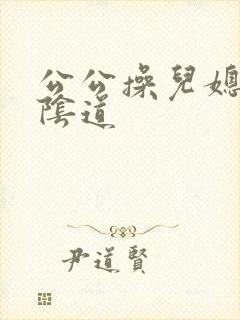 公公操兒媳
陰道
尹道賢